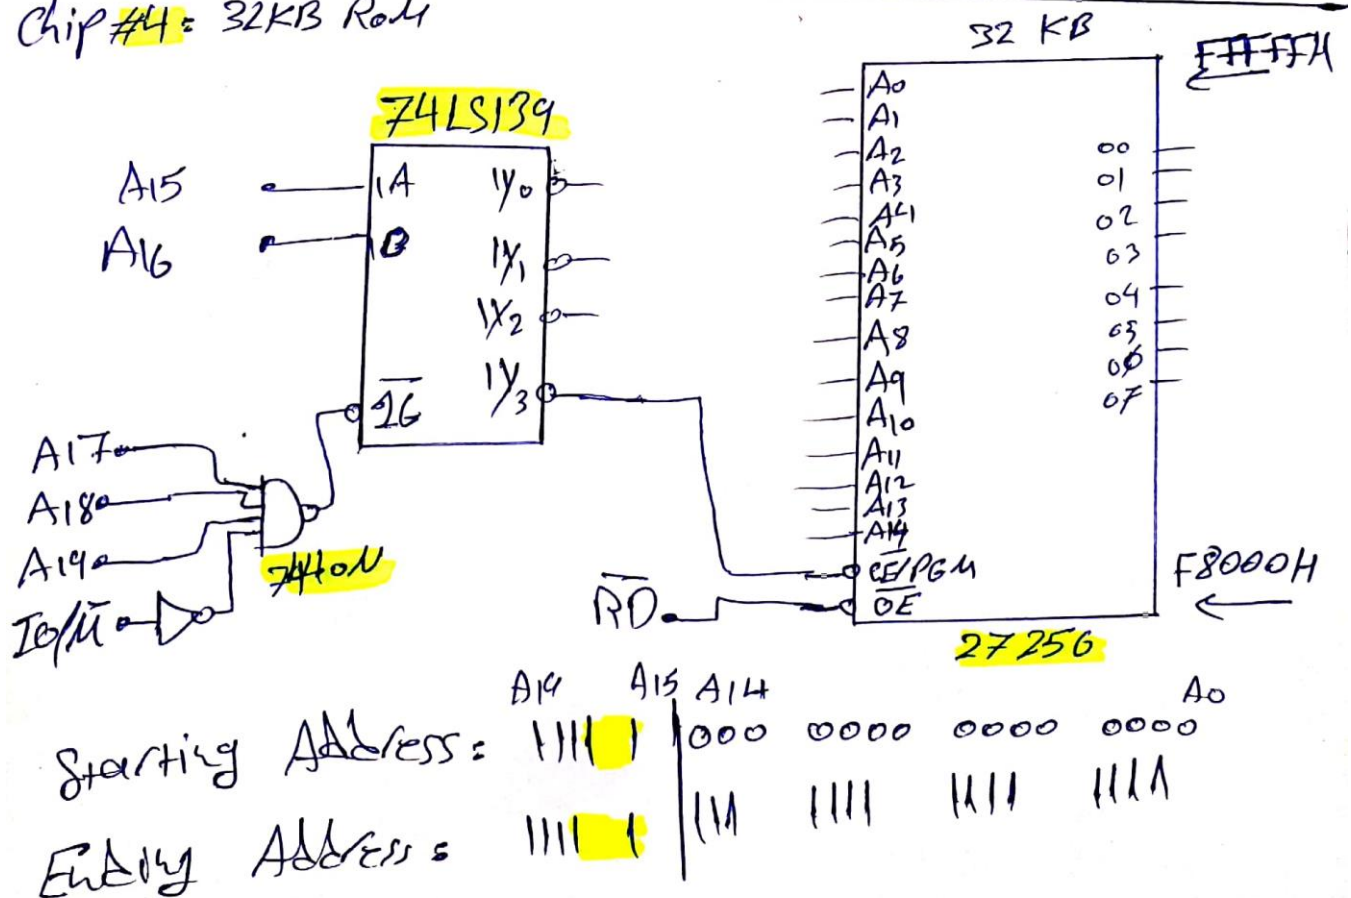 Chip #4: 32KB ROM
32 KB
FFFFFH
74LS139
A15
A16
1A
1B
1Y0
1Y1
1Y2
1Y3
1G
A17
A18
A19
IO/M
A0
A1
A2
A3
A4
A5
A6
A7
A8
A9
A10
A11
A12
A13
A14
CE/PGM
OE
00
01
02
03
04
05
06
07
RD
F8000H
27256
A19 A15 A14 A0
Starting Address: 1111 1 000 0000 0000 0000
Ending Address: 1111 1 111 1111 1111 1111